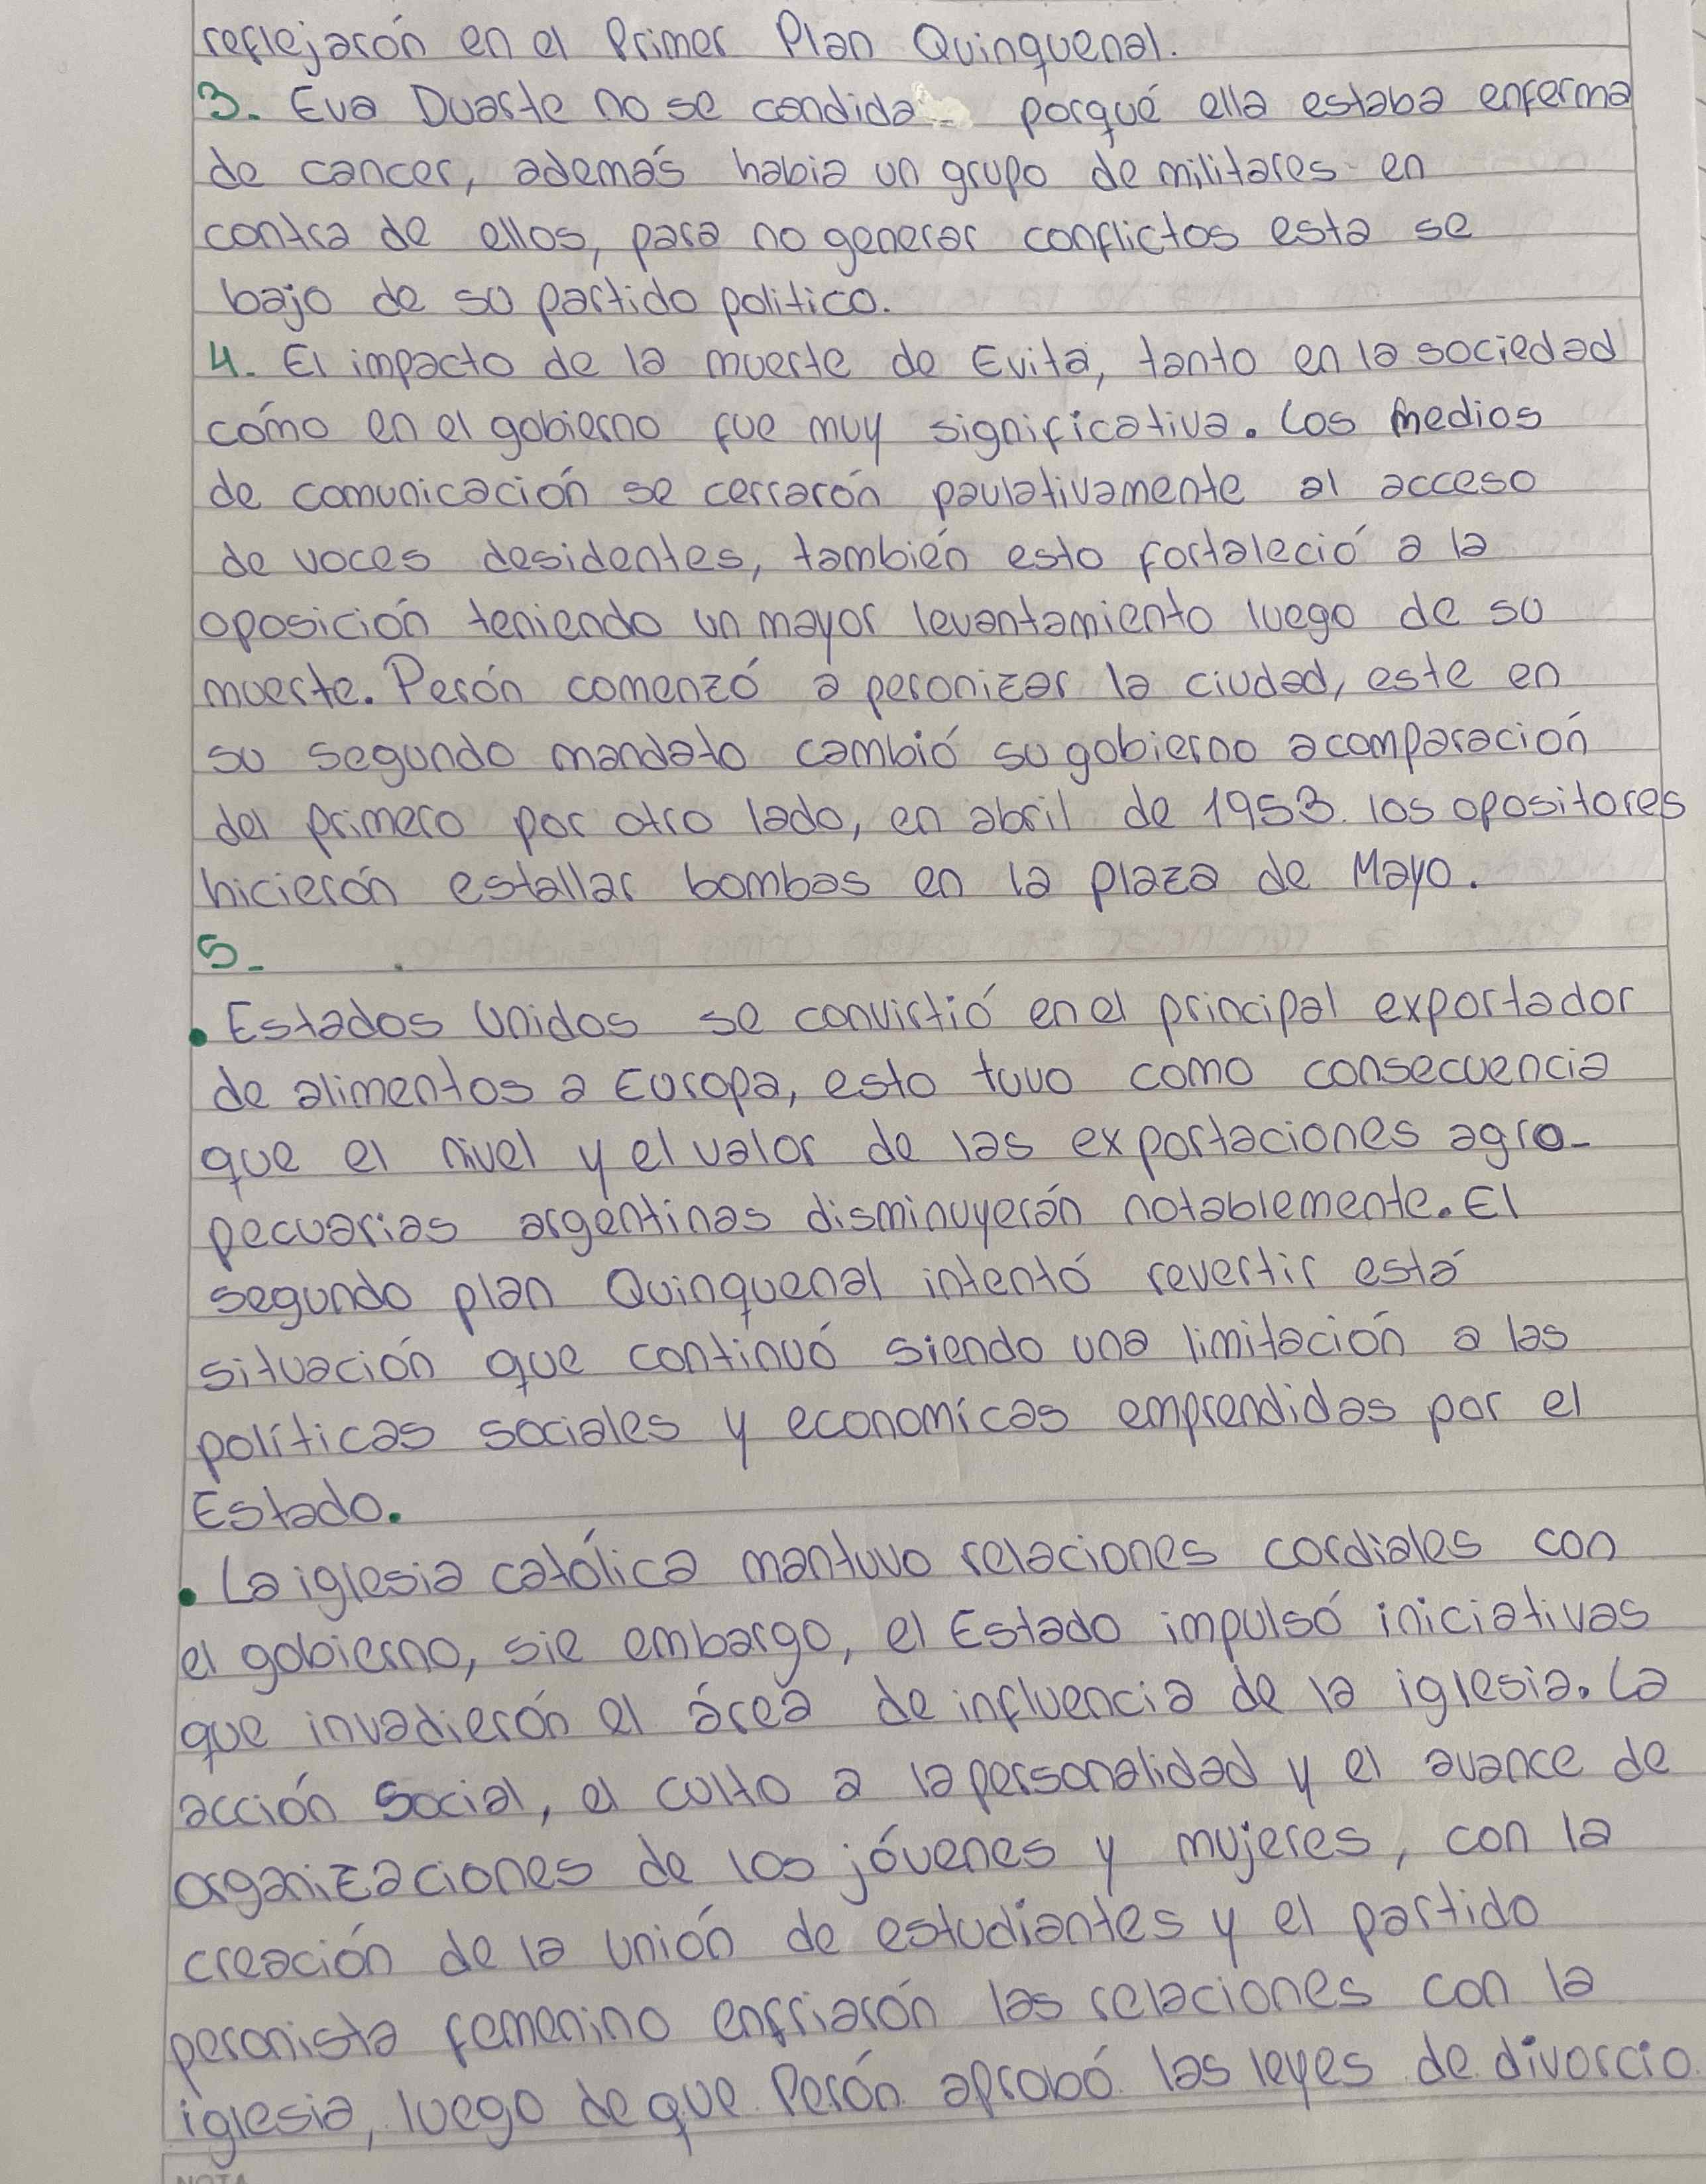 reflejarón en el Primer Plan Quinquenal.
3. Eva Duarte no se candida porqué ella estaba enferma
de cancer, además habia un grupo de militares en
contra de ellos, para no generar conflictos esta se
bajo de su partido politico.
4. El impacto de la muerte de Evita, tanto en la sociedad
cómo en el gobierno fue muy significativa. Los medios
de comunicación se cerrarón paulativamente al acceso
de voces desidentes, también esto fortaleció a la
oposición teniendo un mayor levantamiento luego de su
muerte. Perón comenzó a peronizar la ciudad, este en
su segundo mandato cambió su gobierno acomparación
del primero por otro lado, en abril de 1953. los opositores
hicierón estallar bombas en la plaza de Mayo.
5-
• Estados Unidos se convirtió en el principal exportador
de alimentos a Europa, esto tuvo como consecuencia
que el nivel y el valor de las exportaciones agro-
pecuarias argentinas disminuyerón notablemente. El
segundo plan Quinquenal intentó revertir está
situación que continuó siendo una limitación a las
políticas sociales y economícas emprendidas por el
Estado.
• La iglesia católica mantuvo relaciones cordiales con
el gobierno, sie embargo, el Estado impulsó iniciativas
que invadierón el área de influencia de la iglesia. La
acción social, el culto a la personalidad y el avance de
organizaciones de los jóvenes y mujeres, con la
creación de la unión de estudiantes y el partido
peronista femenino enfriarón las relaciones con la
iglesia, luego de que Perón aprobó las leyes de divorcio.
NOTA